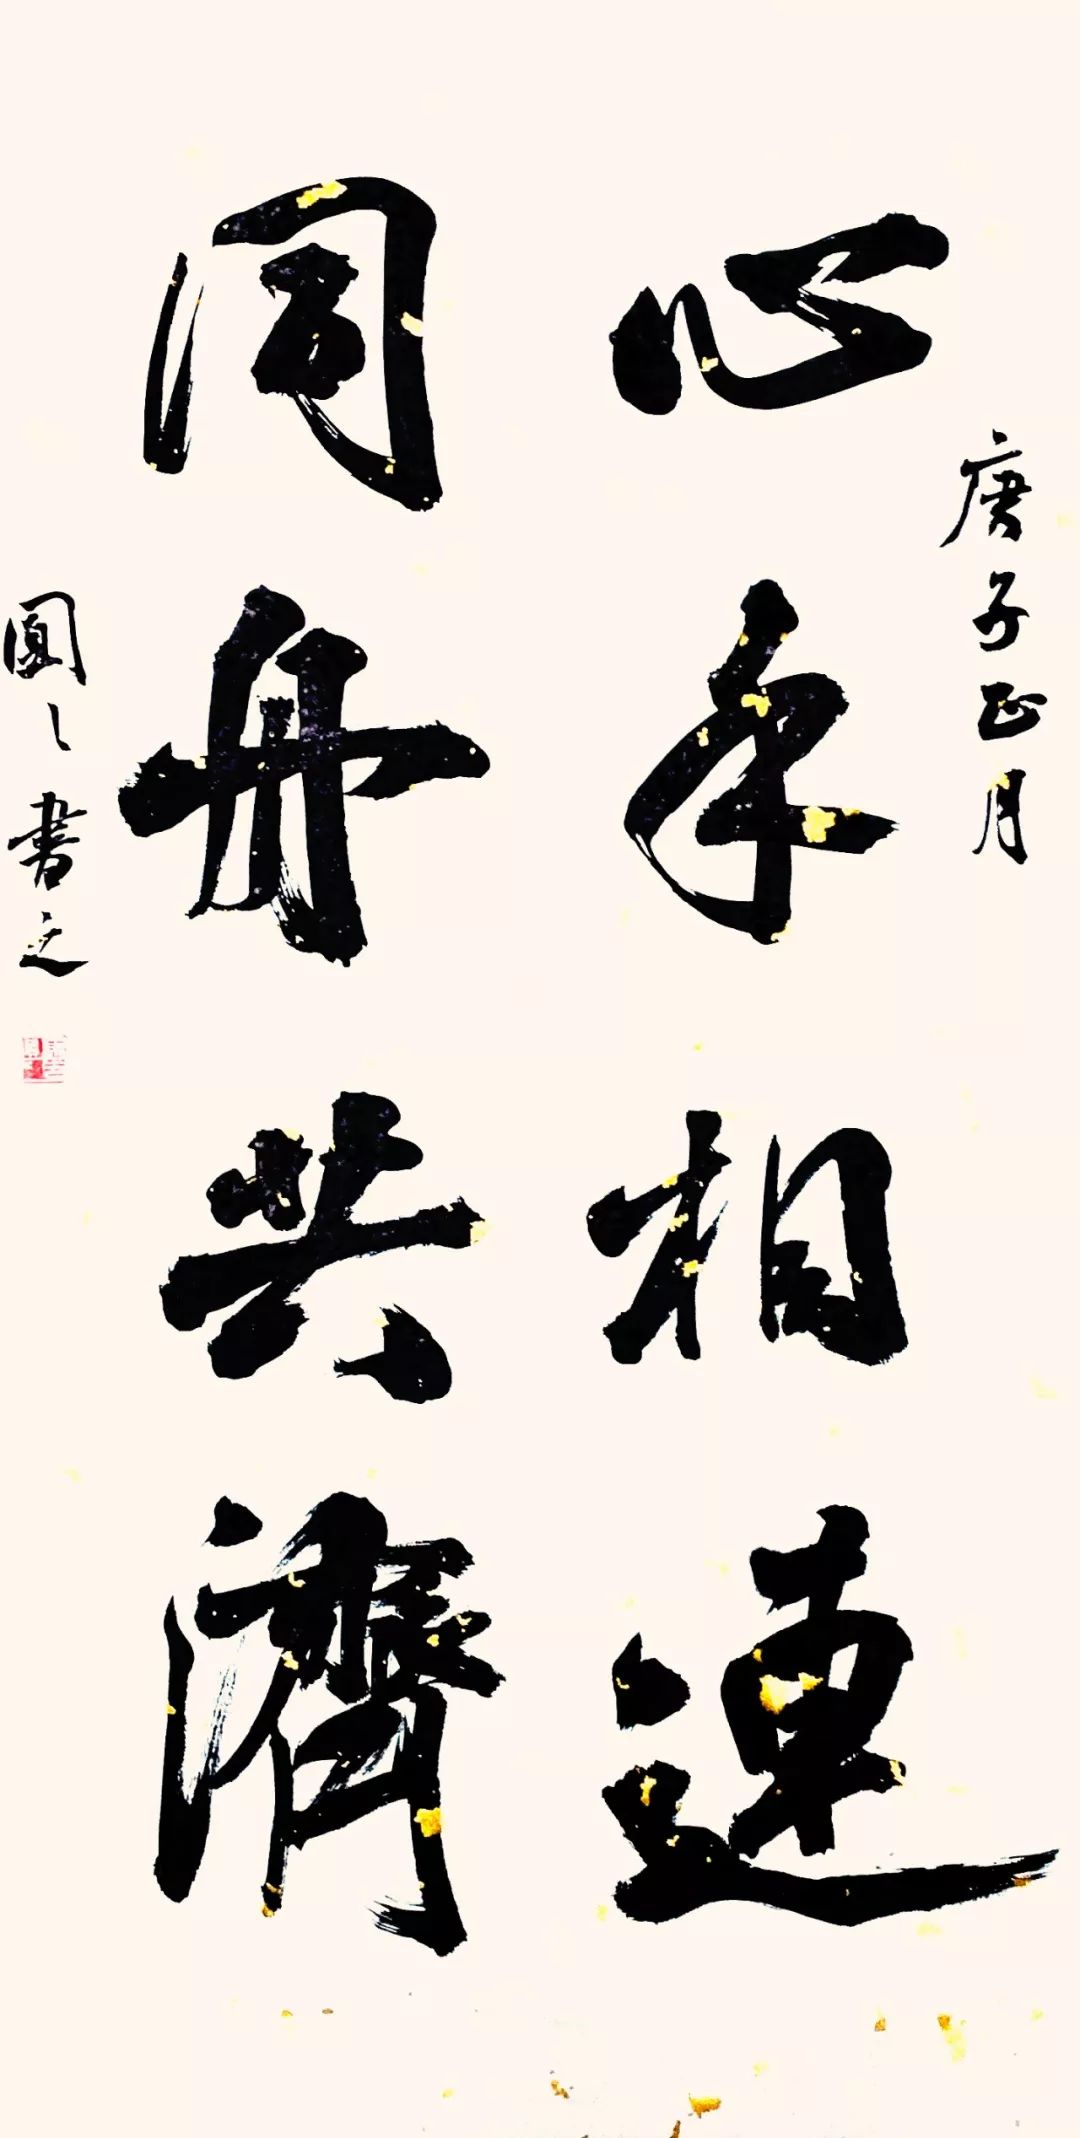 庚子正月
心手相連
同舟共濟
圓書之